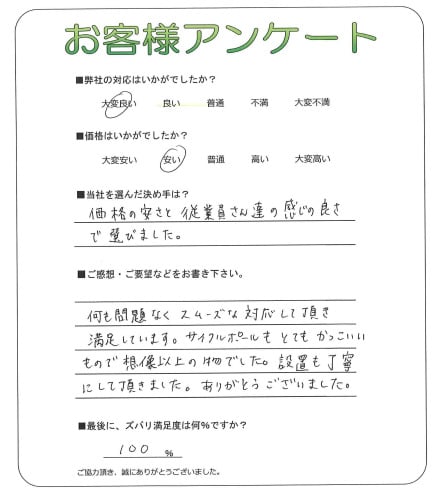 お客様アンケート
■弊社の対応はいかがでしたか？
大変良い 良い 普通 不満 大変不満
■価格はいかがでしたか？
大変安い 安い 普通 高い 大変高い
■当社を選んだ決め手は？
価格の安さと従業員さん達の感じの良さ
で選びました。
■ご感想・ご要望などをお書き下さい。
何も問題なくスムーズな対応して頂き
満足しています。サイクルポールもとてもかっこいい
もので想像以上の物でした。設置も丁寧
にして頂きました。ありがとうございました。
■最後に、ズバリ満足度は何%ですか？
100 %
ご協力頂き、誠にありがとうございました。